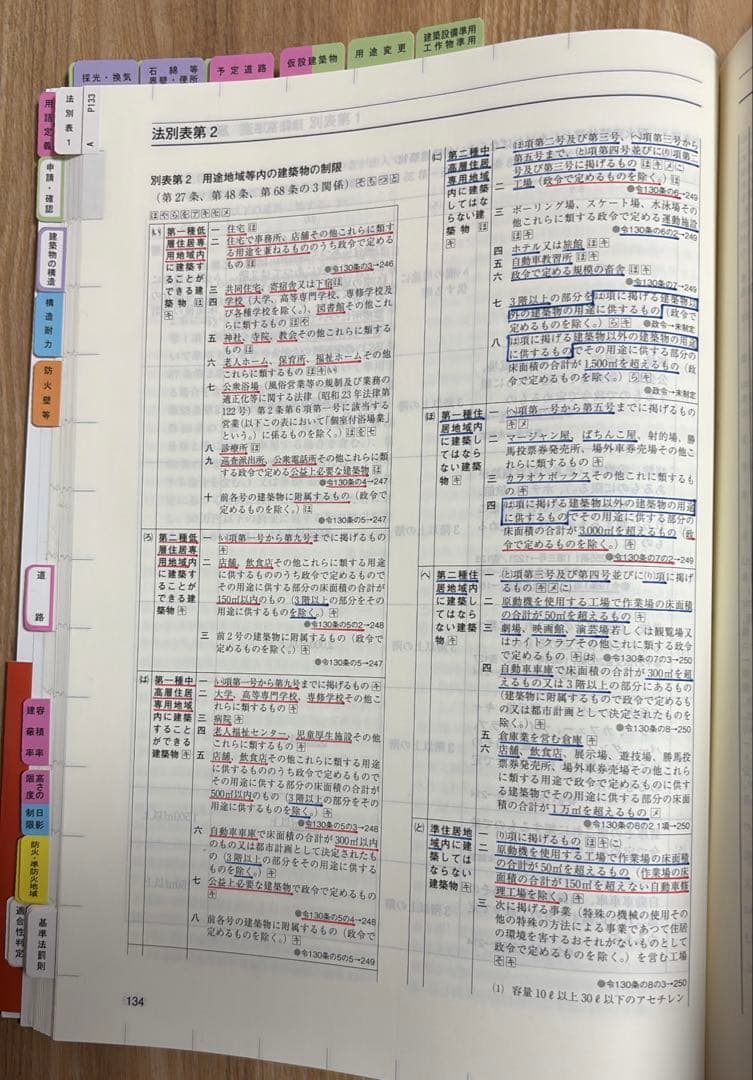 建築設備準用
工作物準用
用途変更
仮設建築物
予定道路
石綿等
居壁・便所
採光・換気
P133
法別表1
A
用語定義
申請・確認
建築物の構造
構造耐力
防火壁等
道路
容積率
建蔽率
高さの限度
日影制限
防火・準防火地域
基準法罰則
適合性判定
法別表第2
別表第2 用途地域等内の建築物の制限
(第27条、第48条、第68条の3関係)
第一種低
層住居専
用地域内
に建築す
ることが
できる建
築物
一 住宅
二 住宅で事務所、店舗その他これらに類す
る用途を兼ねるもののうち政令で定める
もの
●令130条の3→246
三 共同住宅、寄宿舎又は下宿
四 学校(大学、高等専門学校、専修学校及
び各種学校を除く。)、図書館その他これ
らに類するもの
五 神社、寺院、教会その他これらに類する
もの
六 老人ホーム、保育所、福祉ホームその他
これらに類するもの
七 公衆浴場(風俗営業等の規制及び業務の
適正化等に関する法律(昭和23年法律第
122号)第2条第6項第一号に該当する
営業(以下この表において「個室付浴場業」
という。)に係るものを除く。)
八 診療所
九 巡査派出所、公衆電話所その他これらに
類する政令で定める公益上必要な建築物
●令130条の4→247
十 前各号の建築物に附属するもの(政令で
定めるものを除く。)
●令130条の5→247
(ろ) 第二種低
層住居専
用地域内
に建築す
ることが
できる建
築物
一 (い)項第一号から第九号までに掲げるもの
二 店舗、飲食店その他これらに類する用途
に供するもののうち政令で定めるもので
その用途に供する部分の床面積の合計が
150㎡以内のもの(3階以上の部分をその
用途に供するものを除く。)
●令130条の5の2→248
三 前2号の建築物に附属するもの(政令で
定めるものを除く。)
●令130条の5→247
(は) 第一種中
高層住居
専用地域
内に建築
すること
ができる
建築物
一 (い)項第一号から第九号までに掲げるもの
二 大学、高等専門学校、専修学校その他こ
れらに類するもの
三 病院
四 老人福祉センター、児童厚生施設その他
これらに類するもの
五 店舗、飲食店その他これらに類する用途
に供するもののうち政令で定めるもので
その用途に供する部分の床面積の合計が
500㎡以内のもの(3階以上の部分をその
用途に供するものを除く。)
●令130条の5の3→248
六 自動車車庫で床面積の合計が300㎡以内
のもの又は都市計画として決定されたも
の(3階以上の部分をその用途に供する
ものを除く。)
七 公益上必要な建築物で政令で定めるもの
●令130条の5の4→248
八 前各号の建築物に附属するもの(政令で
定めるものを除く。)
●令130条の5の5→249
(に) 第二種中
高層住居
専用地域
内に建築
してはな
らない建
築物
一 (ほ)項第二号及び第三号、(へ)項第三号から
第五号まで、(と)項第四号並びに(り)項第二
号及び第三号に掲げるもの
二 工場(政令で定めるものを除く。)
●令130条の6→249
三 ボーリング場、スケート場、水泳場その
他これらに類する政令で定める運動施設
●令130条の6の2→249
四 ホテル又は旅館
五 自動車教習所
六 政令で定める規模の畜舎
七 3階以上の部分を(は)項に掲げる建築物以
外の建築物の用途に供するもの(政令で
定めるものを除く。)
●政令→未制定
八 (は)項に掲げる建築物以外の建築物の用途
に供するものでその用途に供する部分の
床面積の合計が1,500㎡を超えるもの(政
令で定めるものを除く。)
●政令→未制定
(ほ) 第一種住
居地域内
に建築し
てはなら
ない建築
物
一 (へ)項第一号から第五号までに掲げるもの
二 マージャン屋、ぱちんこ屋、射的場、勝
馬投票券発売所、場外車券売場その他こ
れらに類するもの
三 カラオケボックスその他これに類するも
の
四 (は)項に掲げる建築物以外の建築物の用途
に供するものでその用途に供する部分の
床面積の合計が3,000㎡を超えるもの(政
令で定めるものを除く。)
●令130条の7の2→249
(へ) 第二種住
居地域内
に建築し
てはなら
ない建築
物
一 (と)項第三号及び第四号並びに(り)項に掲げ
るもの
二 原動機を使用する工場で作業場の床面積
の合計が50㎡を超えるもの
三 劇場、映画館、演芸場若しくは観覧場又
はナイトクラブその他これに類する政令
で定めるもの ●令130条の7の3→250
四 自動車車庫で床面積の合計が300㎡を超
えるもの又は3階以上の部分にあるもの
(建築物に附属するもので政令で定めるも
の又は都市計画として決定されたものを
除く。) ●令130条の8→250
五 倉庫業を営む倉庫
六 店舗、飲食店、展示場、遊技場、勝馬投
票券発売所、場外車券売場その他これら
に類する用途で政令で定めるものに供す
る建築物でその用途に供する部分の床面
積の合計が1万㎡を超えるもの
●令130条の8の2.1項→250
(と) 準住居地
域内に建
築しては
ならない
建築物
一 (り)項に掲げるもの
二 原動機を使用する工場で作業場の床面積
の合計が50㎡を超えるもの(作業場の床
面積の合計が150㎡を超えない自動車修
理工場を除く。)
三 次に掲げる事業(特殊の機械の使用その
他の特殊の方法による事業であつて住居
の環境を害するおそれがないものとして
政令で定めるものを除く。)を営む工場
●令130条の8の3→250
(1) 容量10ℓ以上30ℓ以下のアセチレン
134